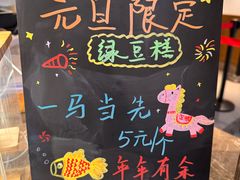 元旦限定
绿豆糕
一马当先
5元/个
年年有余